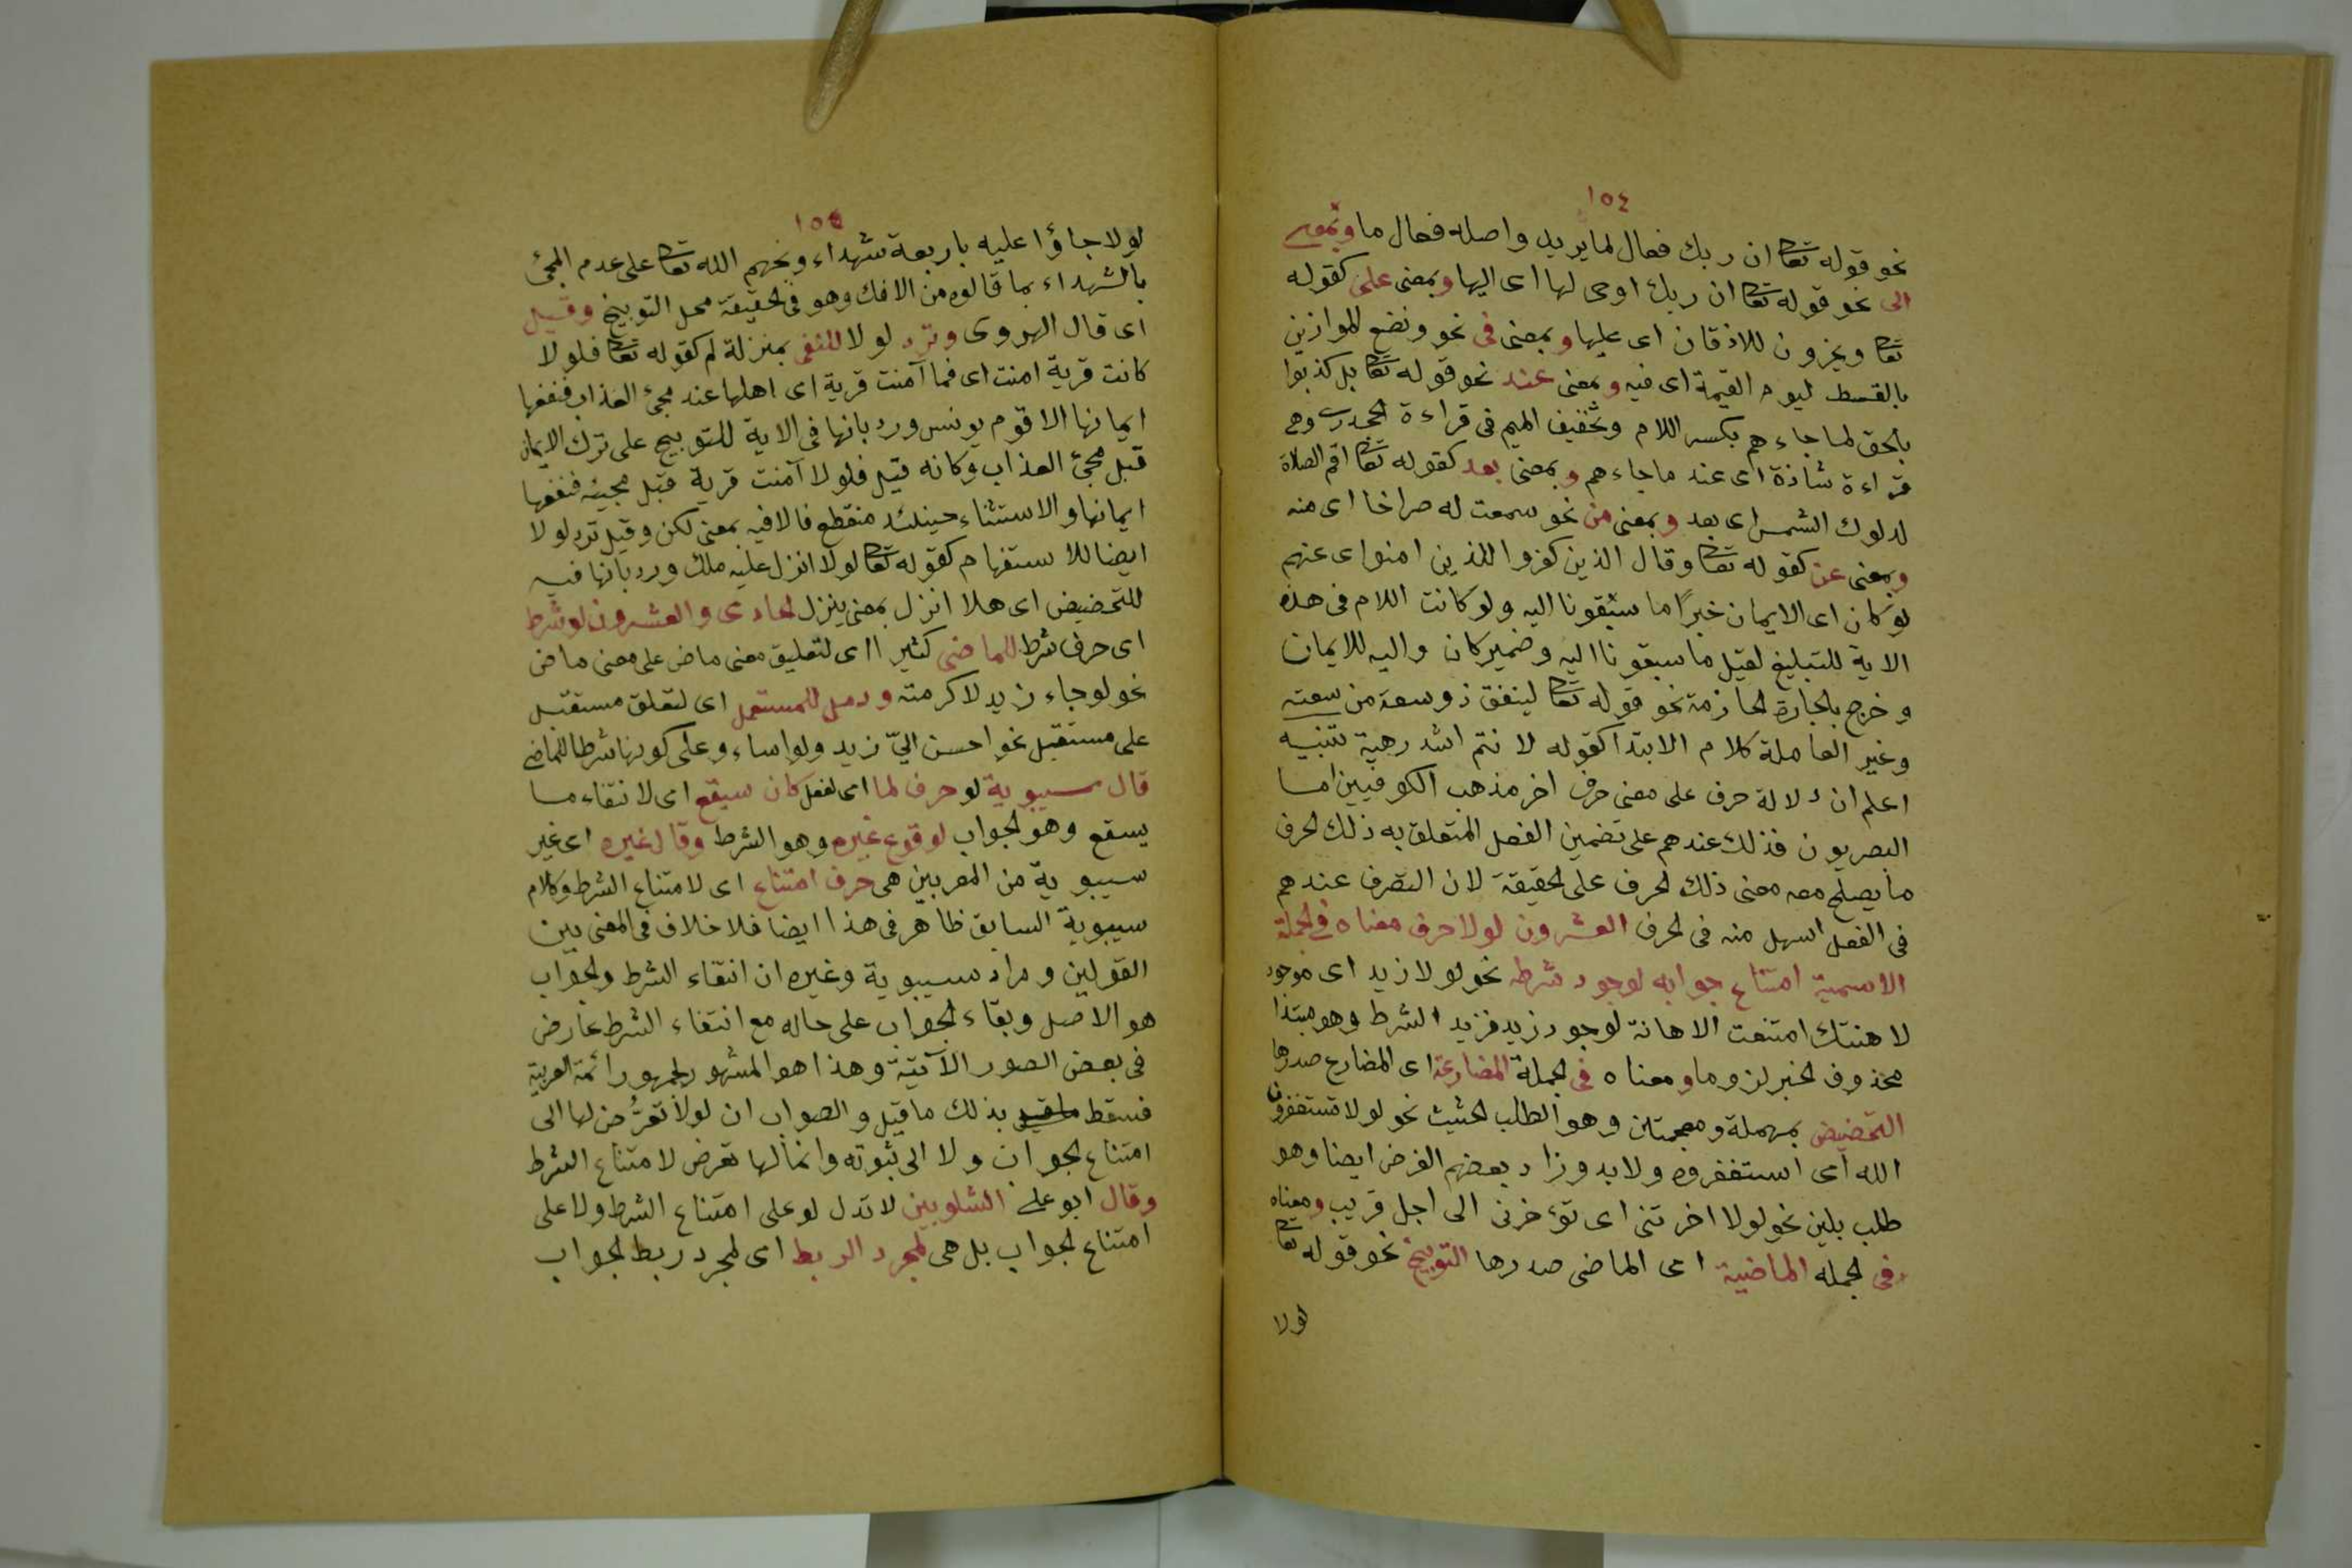 ١٥٤
نحو قوله تعا ان ربك فعال لما يريد واصله فعال ما وبمعنى
الى نحو قوله تعا ان ربك اوحى لها اى اليها وبمعنى على كقوله
تعا ويخرون للاذقان اى عليها وبمعنى فى نحو ونضع الموازين
بالقسط ليوم القيمة اى فيه وبمعنى عند نحو قوله تعا بل كذبوا
بالحق لما جاءهم بكسر اللام وتخفيف الميم فى قراءة الجحدرى وهى
قراءة شاذة اى عند ما جاءهم وبمعنى بعد كقوله تعا اقم الصلاة
لدلوك الشمس اى بعد وبمعنى من نحو سمعت له صراخا اى منه
وبمعنى عن كقوله تعا وقال الذين كفروا للذين امنوا اى عنهم
لو كان اى الايمان خيرًا ما سبقونا اليه ولو كانت اللام فى هذه
الاية للتبليغ لقيل ما سبقونا اليه وضمير كان واليه للايمان
وخرج بالجارة الجازمة نحو قوله تعا لينفق ذو سعة من سعته
وغير العاملة كلام الابتدا كقوله لانتم اشد رهبة تنبيه
اعلم ان دلالة حرف على معنى حرف اخر مذهب الكوفيين اما
البصريون فذلك عندهم على تضمين الفعل المتعلق به ذلك الحرف
ما يصلح معه معنى ذلك الحرف على الحقيقة لان التصرف عندهم
فى الفعل اسهل منه فى الحرف العشرون لولا حرف معناه فى الجملة
الاسمية امتناع جوابه لوجود شرطه نحو لولا زيد اى موجود
لاهنتك امتنعت الاهانة لوجود زيد فزيد الشرط وهو مبتدا
محذوف الخبر لزوما ومعناه فى الجملة المضارعة اى المضارع صدرها
التحضيض بمهملة ومعجمتين وهو الطلب الحثيث نحو لولا تستغفرون
الله اى استغفروه ولا بد وزاد بعضهم العرض ايضا وهو
طلب بلين نحو لولا اخرتنى اى تؤخرنى الى اجل قريب ومعناه
فى الجمله الماضية اى الماضى صدرها التوبيخ نحو قوله تعا
لولا
١٥٥
لولا جاؤا عليه باربعة شهداء وبخهم الله تعا على عدم المجئ
بالشهداء بما قالوه من الافك وهو فى الحقيقة محل التوبيخ وقيل
اى قال الهروى وترد لولا للنفى بمنزلة لم كقوله تعا فلولا
كانت قرية امنت اى فما آمنت قرية اى اهلها عند مجئ العذاب فنفعها
ايمانها الا قوم يونس ورد بانها فى الاية للتوبيخ على ترك الايمان
قبل مجئ العذاب وكانه قيل فلولا آمنت قرية قبل مجيئه فنفعها
ايمانها والاستثناء حينئذ منقطع فالا فيه بمعنى لكن وقيل ترد لولا
ايضا للاستفهام كقوله تعا لولا انزل عليه ملك ورد بانها فيه
للتحضيض اى هلا انزل بمعنى ينزل الحادى والعشرون لو شرط
اى حرف شرط للماضى كثيرا اى لتعليق معنى ماض على معنى ماض
نحو لو جاء زيد لاكرمته للمستقبل اى لتعلق مستقبل
على مستقبل نحو احسن الىّ زيد ولو اساء وعلى كونها شرطا للماضى
قال سيبوية لو حرف لما اى لفعل كان سيقع اى لانتفاء ما
يسقع وهو الجواب لوقوع غيره وهو الشرط وقال غيره اى غير
سيبوية من المعربين هى حرف امتناع اى لامتناع الشرط وكلام
سيبوية السابق ظاهر فى هذا ايضا فلا خلاف فى المعنى بين
القولين ومراد سيبوية وغيره ان انتفاء الشرط والجواب
هو الاصل وبقاء الجواب على حاله مع انتفاء الشرط عارض
فى بعض الصور الآتية وهذا هو المشهور لجمهور ائمة العربية
فسقط بذلك ما قيل والصواب ان لو لا تعرُّض لها الى
امتناع الجواب ولا الى ثبوته وانما لها تعرض لامتناع الشرط
وقال ابو على الشلوبين لا تدل لو على امتناع الشرط ولا على
امتناع الجواب بل هى لمجرد الربط اى لمجرد ربط الجواب